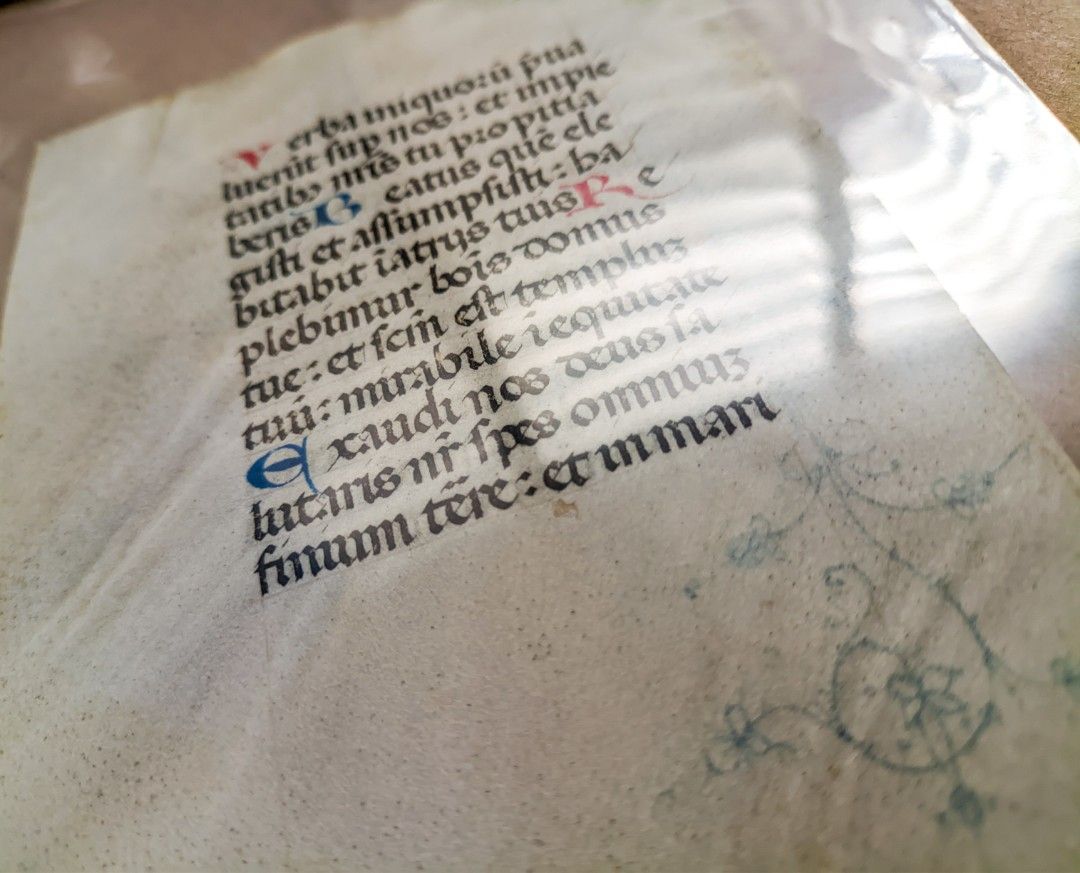 Verba iniquorū p̄ua
luerūt sup nos : et impie
tatibꝫ nr̄is tu propitia
beris Beatus quē ele
gisti et assumpsisti : ha
bitabit ī atrijs tuis Re
plebimur bōis domus
tue : et scm̄ est templuꝫ
tuū : mirabile ī equitate
Exaudi nos deus sa
lutaris nr̄ spes omniuꝫ
finium terre : et in mari